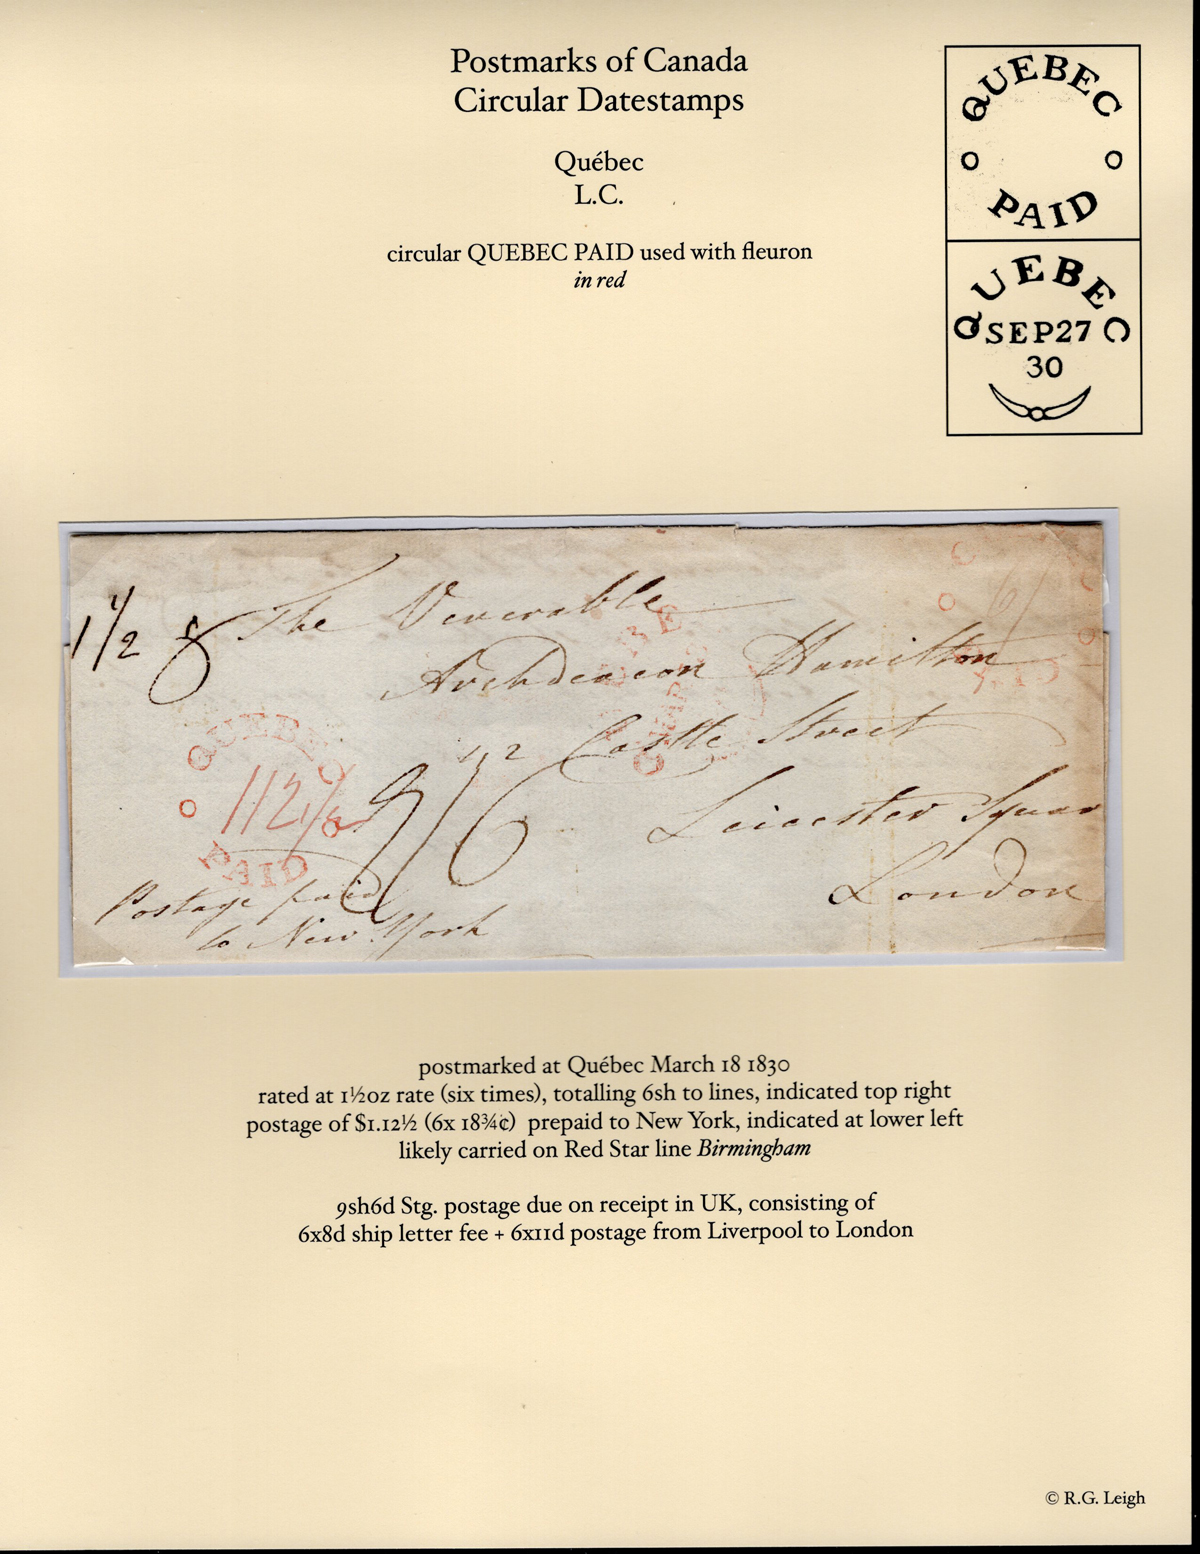 Postmarks of Canada
Circular Datestamps
Québec
L.C.
circular QUEBEC PAID used with fleuron
in red
QUEBEC
PAID
QUEBEC
SEP27
30
1 1/2
The Venerable
Archdeacon Hamilton
42 Castle Street
Leicester Squar
London
QUEBEC
112 1/2
PAID
9/6
6/
Postage paid
to New York
postmarked at Québec March 18 1830
rated at 1½oz rate (six times), totalling 6sh to lines, indicated top right
postage of $1.12½ (6x 18¾¢) prepaid to New York, indicated at lower left
likely carried on Red Star line Birmingham
9sh6d Stg. postage due on receipt in UK, consisting of
6x8d ship letter fee + 6x11d postage from Liverpool to London
© R.G. Leigh